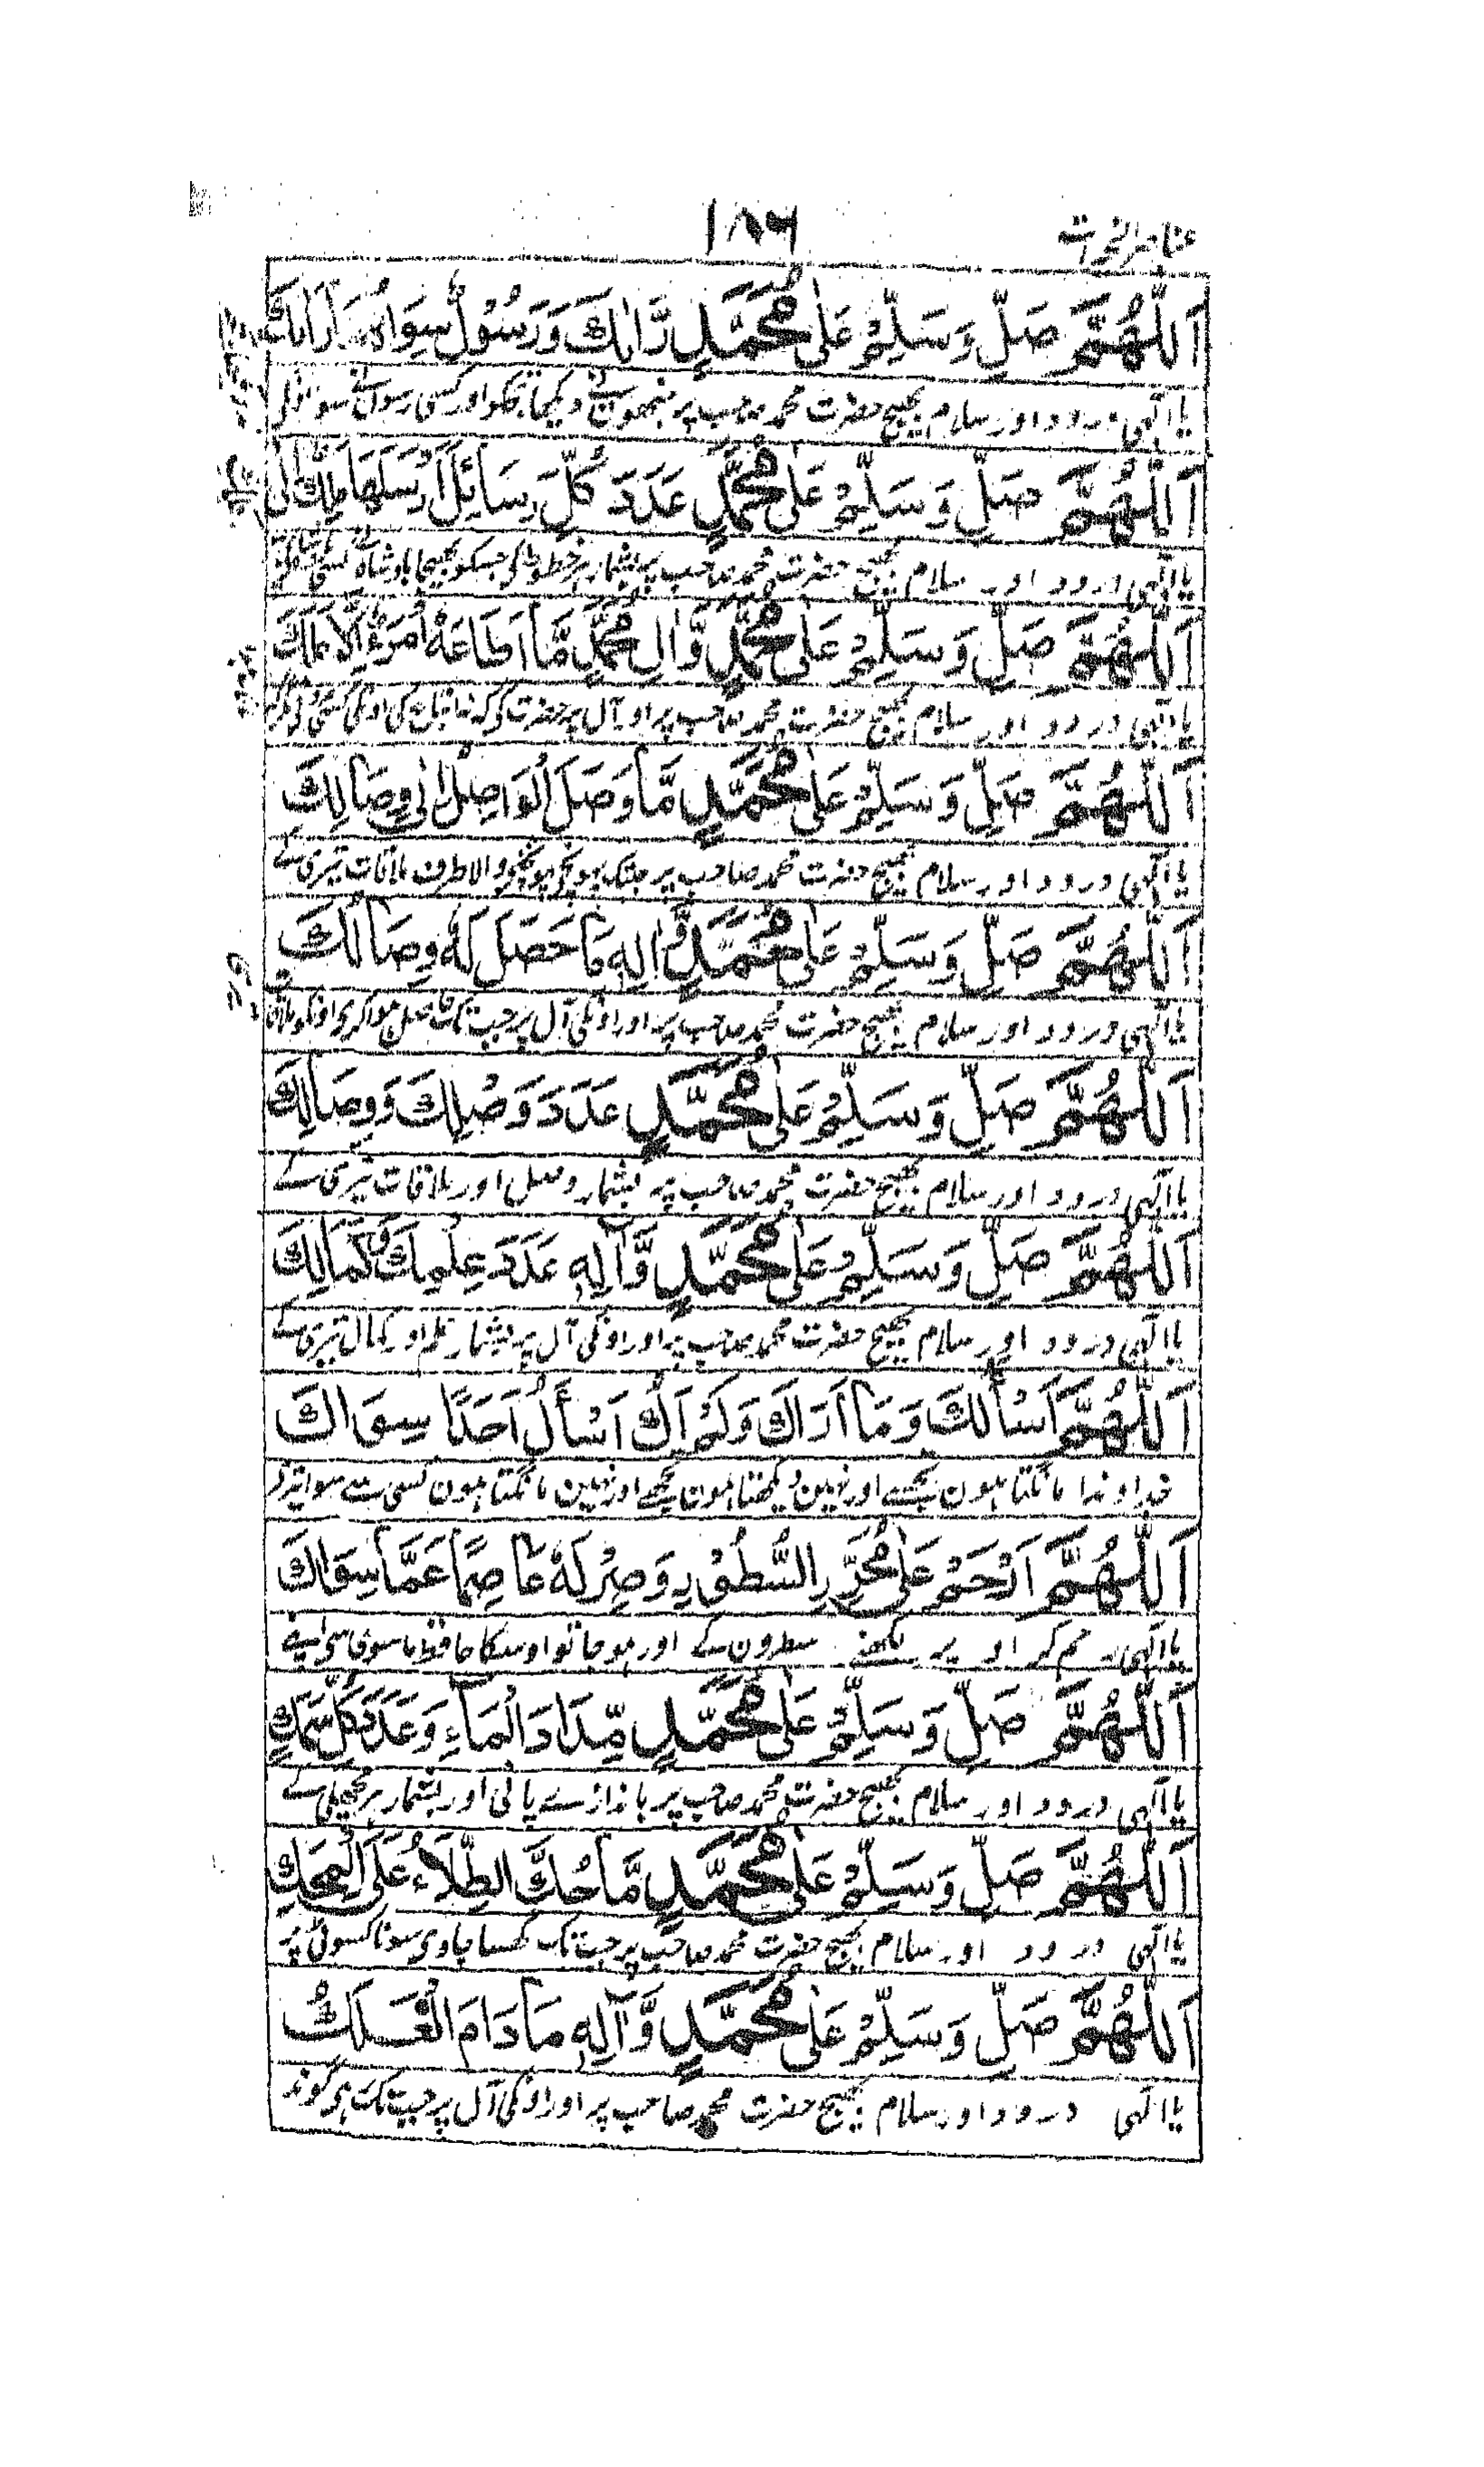 عناصر الخیرات
۱۸۶
اَللّٰهُمَّ صَلِّ وَسَلِّمْ عَلٰی مُحَمَّدٍ رَّاٰكَ وَرَسُوْلٌ سِوَاهُ
یا الٰہی درود اور سلام بھیج حضرت محمد صاحب پر جنھون نے دیکھا تجکو اور کسی رسول نے سوا
اَللّٰهُمَّ صَلِّ وَسَلِّمْ عَلٰی مُحَمَّدٍ عَدَدَ كُلِّ رِسَائِلَ اَرْسَلَهَا مَلِكٌ اِلٰی
یا الٰہی درود اور سلام بھیج حضرت محمد صاحب پر بشمار ہر خطوط کی جسکو بھیجا بادشاہ نے
اَللّٰهُمَّ صَلِّ وَسَلِّمْ عَلٰی مُحَمَّدٍ وَّاٰلِ مُحَمَّدٍ مَّا اَطَاعَهٗ
یا الٰہی درود اور سلام بھیج حضرت محمد صاحب پر اور آل پر حضرت کی
اَللّٰهُمَّ صَلِّ وَسَلِّمْ عَلٰی مُحَمَّدٍ مَّا وَصَلَ الْوَاصِلُ اِلٰی وِصَالِكَ
یا الٰہی درود اور سلام بھیج حضرت محمد صاحب پر جبتک پہونچے پہونچنے والا طرف ملاقات تیری کے
اَللّٰهُمَّ صَلِّ وَسَلِّمْ عَلٰی مُحَمَّدٍ وَّاٰلِهٖ مَا حَصَلَ لَهٗ وِصَالُكَ
یا الٰہی درود اور سلام بھیج حضرت محمد صاحب پر اور اونکی آل پر جب تک حاصل ہوا کری اونکو
اَللّٰهُمَّ صَلِّ وَسَلِّمْ عَلٰی مُحَمَّدٍ عَدَدَ وَصْلِكَ وَوِصَالِكَ
یا الٰہی درود اور سلام بھیج حضرت محمد صاحب پر بشمار وصل اور ملاقات تیری کے
اَللّٰهُمَّ صَلِّ وَسَلِّمْ عَلٰی مُحَمَّدٍ وَّآلِهٖ عَدَدَ عِلْمِكَ وَكَمَالِكَ
یا الٰہی درود اور سلام بھیج حضرت محمد صاحب پر اور اونکی آل پر بشمار علم اور کمال تیری کے
اَللّٰهُمَّ اَسْاَلُكَ وَمَا اَرَاكَ وَلَمْ اَكُ اَسْأَلُ اَحَدًا سِوَاكَ
خداوندا مانگتا ہون تجھسے اور نہین دیکھتا ہون تجھے اور نہین مانگتا ہون کسی سے سوا تیرے
اَللّٰهُمَّ ارْحَمْ عَلٰی مُحَرِّرِ السُّطُوْرِ وَصِرْ لَهٗ عَاصِمًا عَمَّا سِوَاكَ
یا الٰہی رحم کر اوپر لکھنے سطرون کے اور ہو جا تو اوسکا حافظ ماسوی سی اپنے
اَللّٰهُمَّ صَلِّ وَسَلِّمْ عَلٰی مُحَمَّدٍ مِّدَادَ الْمَاءِ وَعَدَدَ كُلِّ سَمَكٍ
یا الٰہی درود اور سلام بھیج حضرت محمد صاحب پر بانداز سے پانی اور بشمار ہر مچھلی کے
اَللّٰهُمَّ صَلِّ وَسَلِّمْ عَلٰی مُحَمَّدٍ مَّا حُكَّ الطِّلَاءُ عَلَی الْمِحَكِ
یا الٰہی درود اور سلام بھیج حضرت محمد صاحب پر جب تک گھسا جاوی سونا کسوٹی پر
اَللّٰهُمَّ صَلِّ وَسَلِّمْ عَلٰی مُحَمَّدٍ وَّآلِهٖ مَا دَامَ الْفَلَكُ
یا الٰہی درود اور سلام بھیج حضرت محمد صاحب پر اور اونکی آل پر جب تک ہو